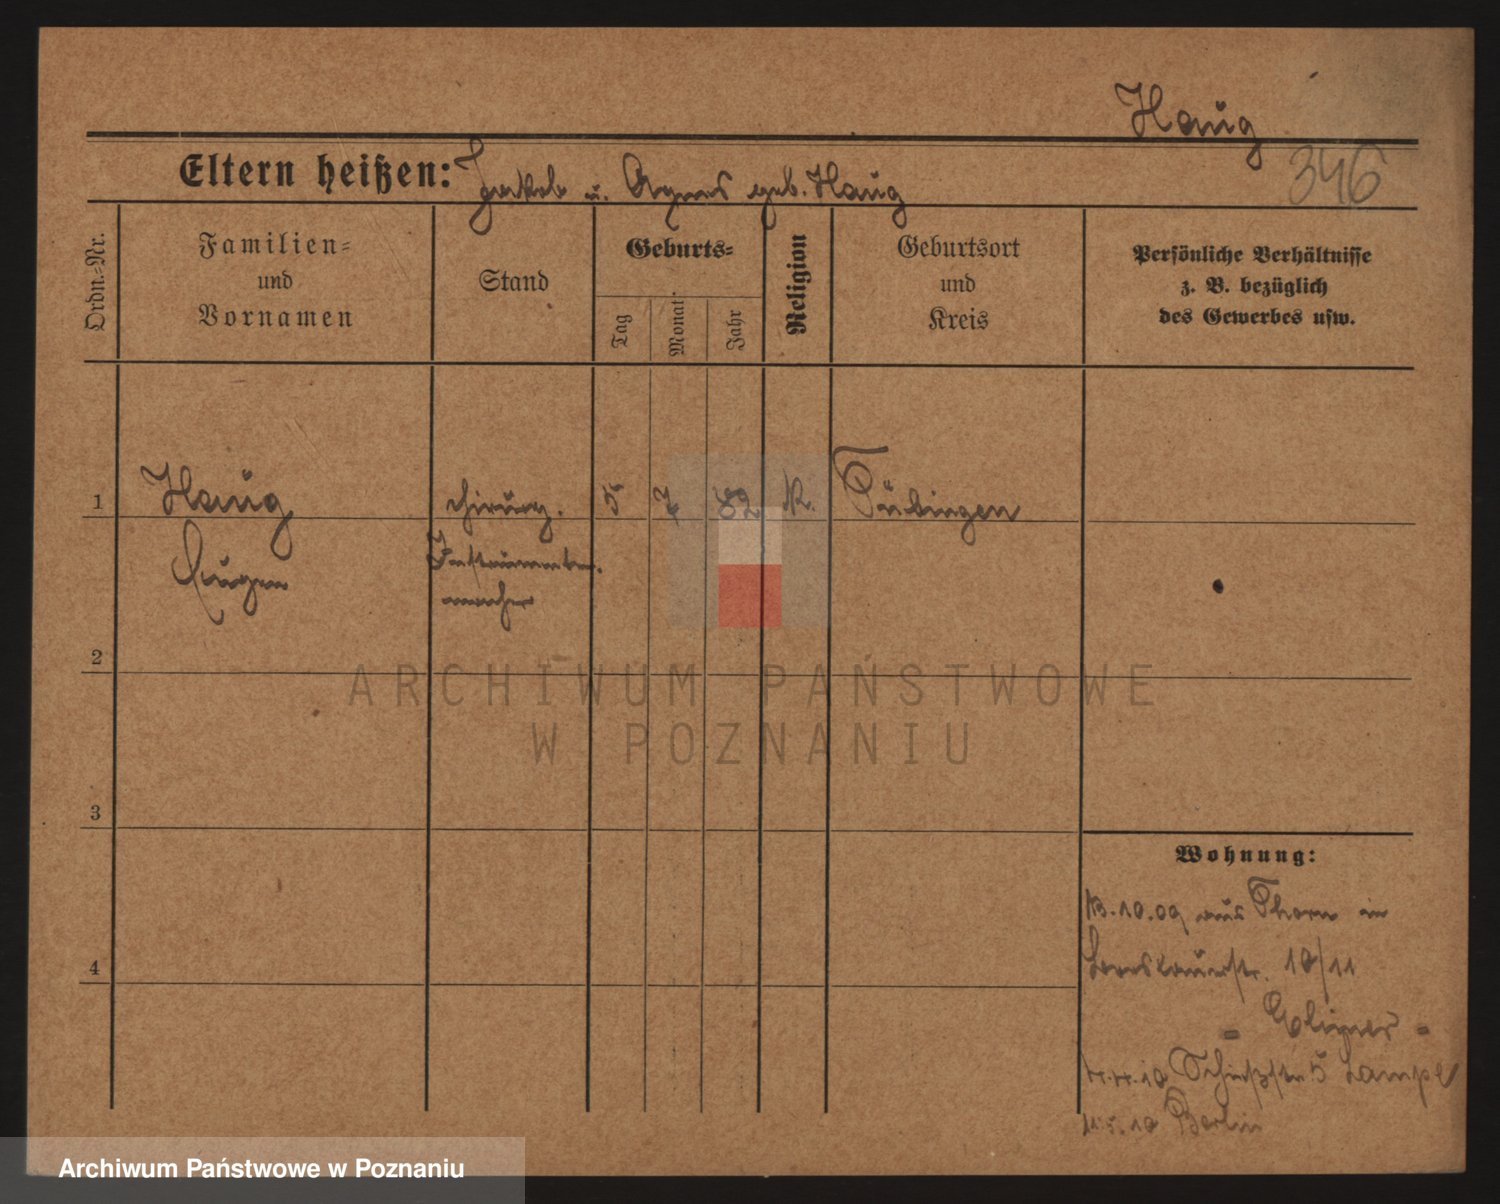 Haug
346
Eltern heißen: Jakob u. Agnes geb. Haug
Ordn.=Nr.
Familien=
und
Vornamen
Stand
Geburts=
Tag
Monat
Jahr
Religion
Geburtsort
und
Kreis
Persönliche Verhältnisse
z. B. bezüglich
des Gewerbes usw.
1
Haug
Eugen
chirurg.
Instrumenten.
macher
5
7
82
K.
Tübingen
2
3
4
Wohnung:
13.10.09 aus Thorn in
Breslauerstr. 10/11
4.4.10 Schießstr 5
11.5.10 Berlin
ARCHIWUM PAŃSTWOWE
W POZNANIU
Archiwum Państwowe w Poznaniu